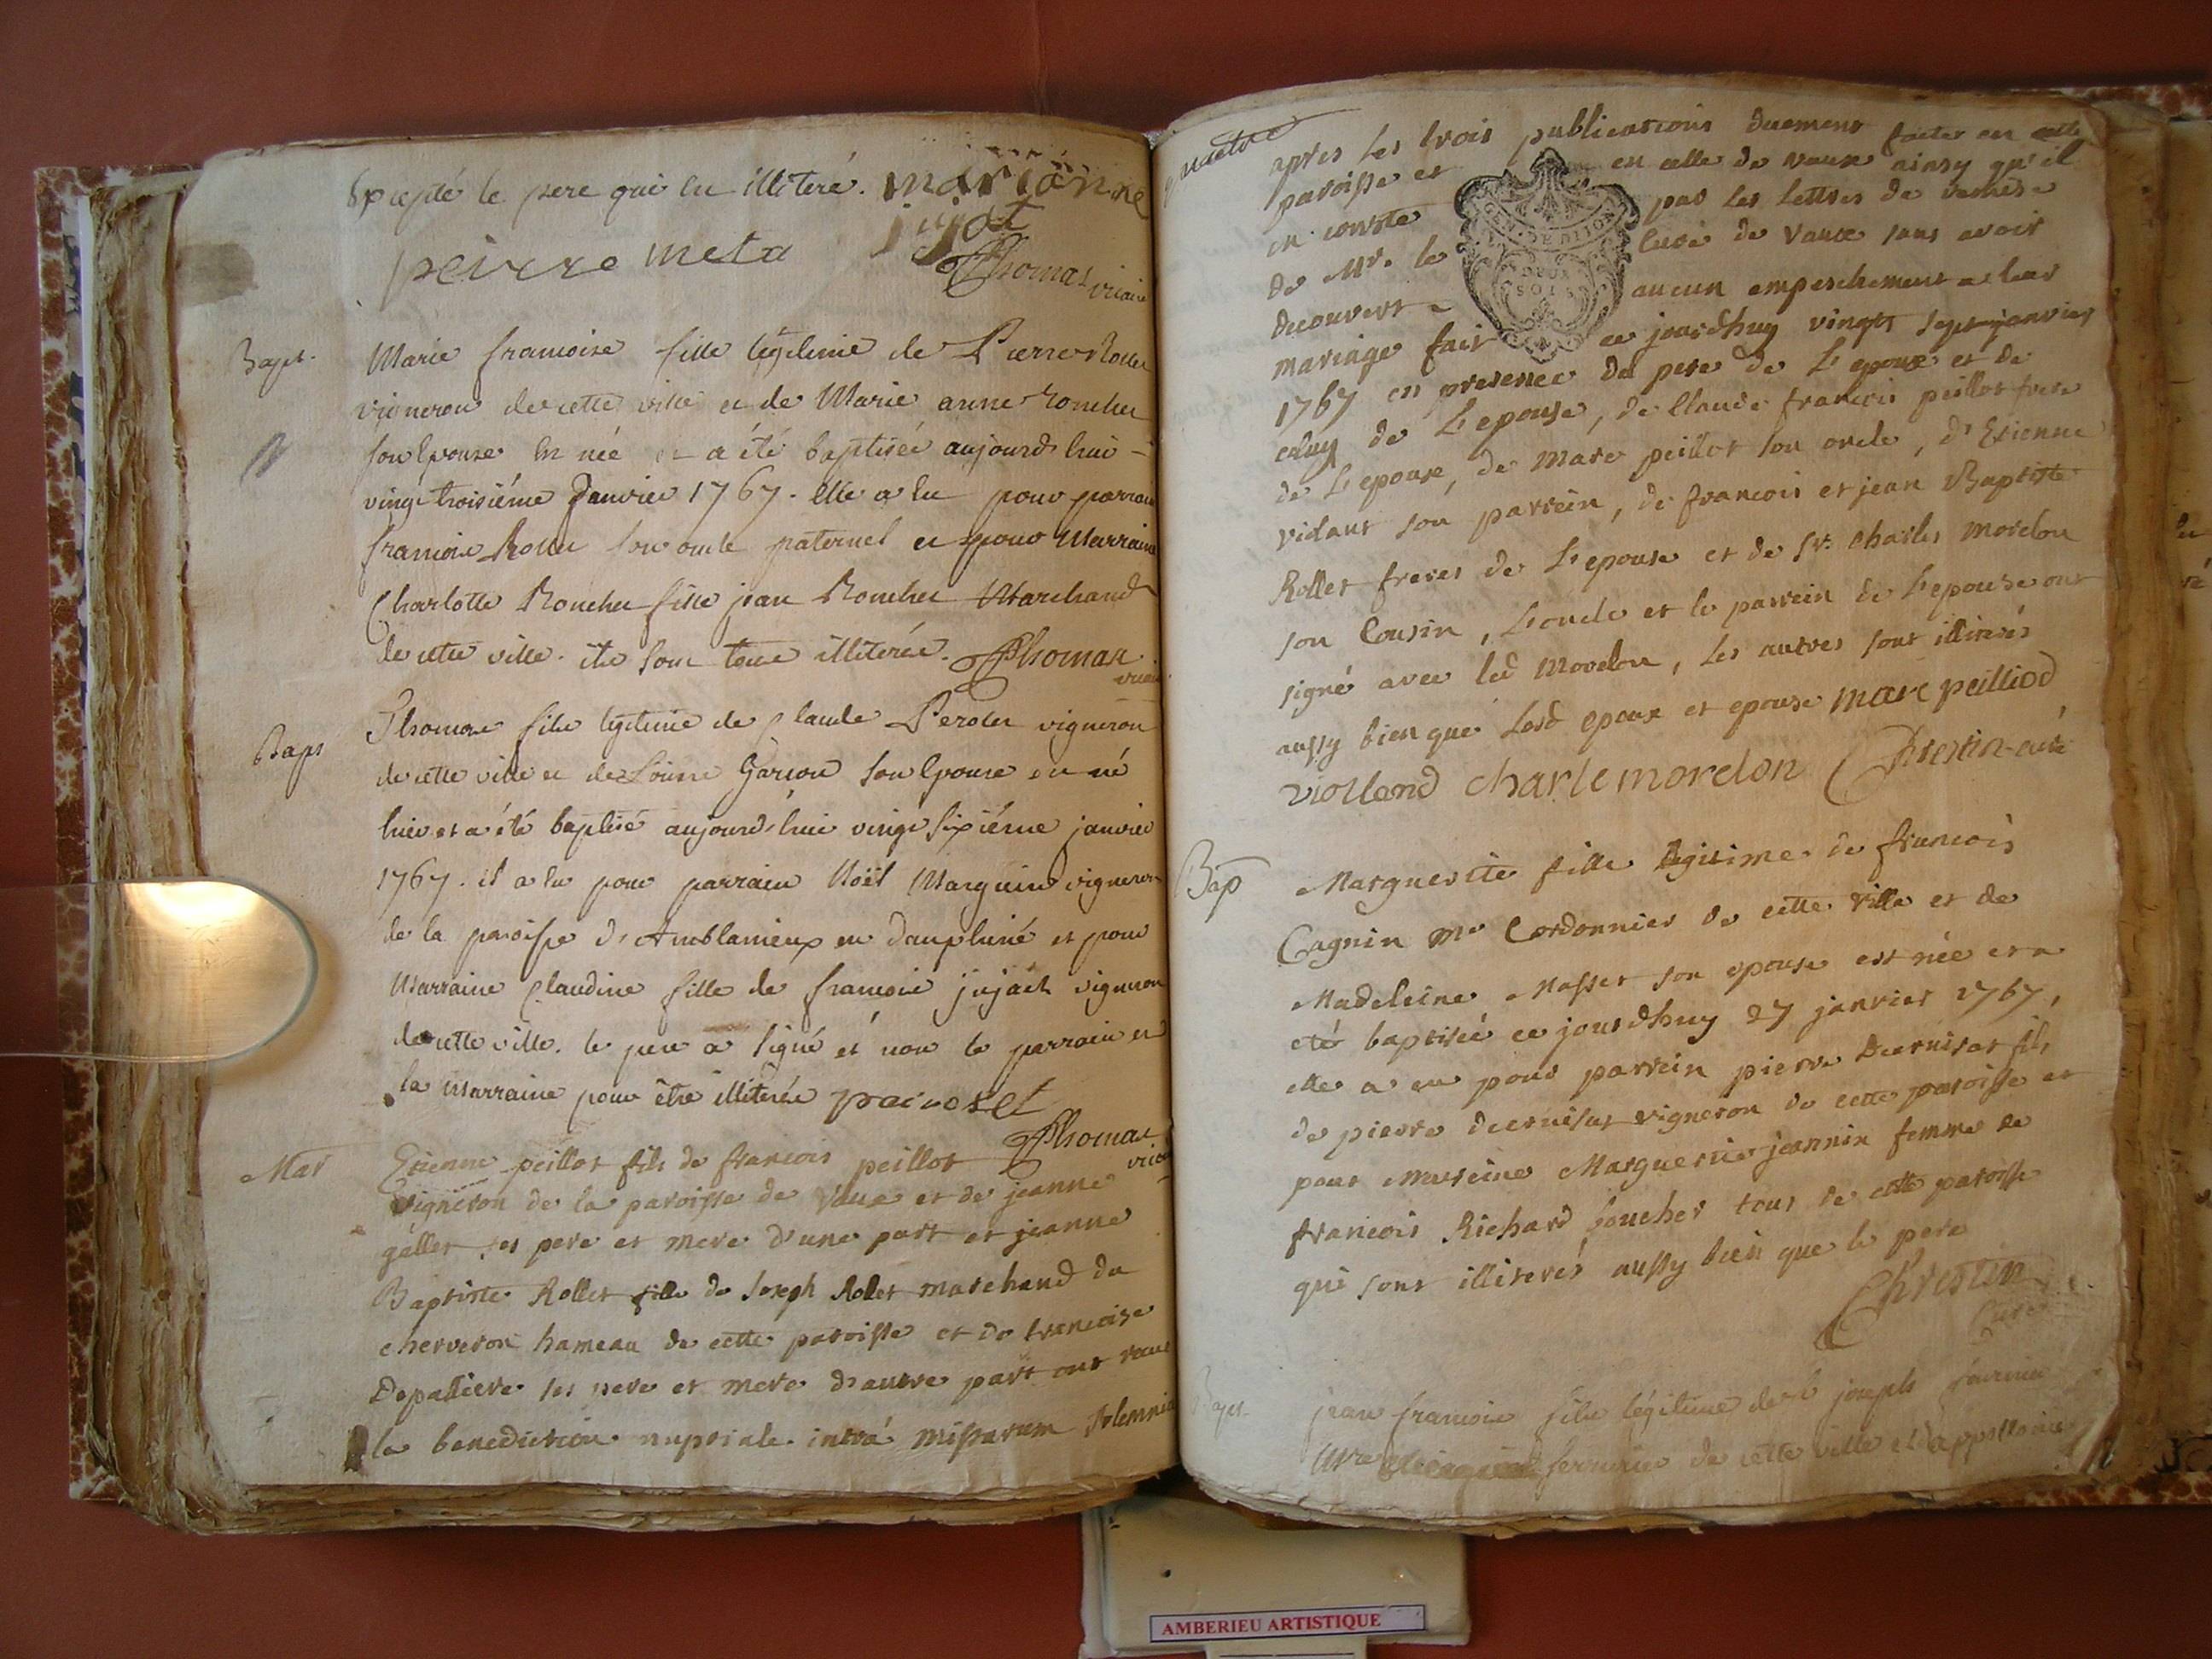 Excepté le pere qui est illiteré. marianne
jujat
peirre meta
Thomas vicaire
Bapt.
Marie francoise fille légitime de Pierre Rollet
vigneron de cette ville et de Marie anne Ronchet
son Epouse est née et a été baptisée aujourd'hui
vingt troisiéme Janvier 1767. elle a eu pour parrain
francois Rollet son oncle paternel et pour Marraine
Charlotte Ronchet fille jean Ronchet Marchand
de cette ville. ils sont tous illiterés. Thomas
vicaire
Bapt
Thomas fils légitime de Claude Perolet vigneron
de cette ville et de Louise Garion son Epouse est né
hier et a été baptisé aujourd'hui vingt sixiéme janvier
1767. il a eu pour parrain Noël Marguin vigneron
de la paroisse d'Amblanieux en dauphiné et pour
Marraine Claudine fille de francois jujact vigneron
de cette ville. le pere a signé et non le parrain et
la Marraine pour être illiterés
Thomas
vicaire
Mar
Etienne peillot fils de francois peillot
vigneron de la paroisse de Vaux et de jeanne
gallet ses pere et mere d'une part et jeanne
Baptiste Rollet fille de Joseph Rollet marchand du
cherveron hameau de cette paroisse et de francoise
Depalliere ses pere et mere d'autre part ont receu
la benediction nuptiale intrá missarum solemnia
quatre
apres les trois publications duement faites en cette
paroisse et en celle de vaux ainsy qu'il
en conste par les lettres de remise
de Mr. le Curé de Vaux sans avoir
decouvert aucun empeschement a leur
mariage fait ce jourdhuy vingt sept janvier
1767 en presence du pere de L'epoux et de
celuy de L'epouse, de Claude francois peillot frere
de L'epoux, de Marc peillot son oncle, d'Etienne
violant son parrein, de francois et jean Baptiste
Rollet freres de L'epouse et de Sr. charles Morelon
son Cousin, L'oncle et le parrein de L'epouse ont
signé avec led Morelon, les autres sont illiterés
aussy bien que Lesd epoux et epouse marc peilliod
violland charle morelon Chrestin curé
Bap
Marguerite fille legitime de francois
Cagnin me Cordonnier de cette ville et de
Madeleine Masset son epouse est née et a
eté baptisée ce jourdhuy 27 janvier 1767,
elle a eu pour parrein pierre Decruisat fils
de pierre decruisat vigneron de cette paroisse et
pour mareine Marguerite jeannin femme de
francois Richard boucher tous de cette paroisse
qui sont illiterés aussy bien que le pere
Chrestin
Curé
Bapt.
jean francois fils légitime de joseph
serrurier de cette ville et d'appollonie
GEN. DE DIJON
DEUX
SOLS
AMBERIEU ARTISTIQUE